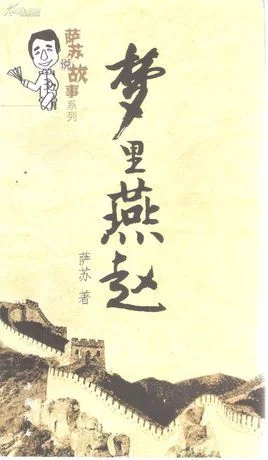 萨苏说故事系列
梦里燕赵
萨苏 著